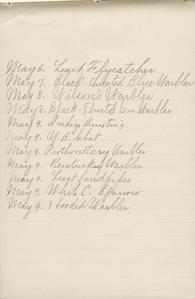 May 6. Least Flycatcher
May 7. Black-throated Blue Warbler
May 8. Wilson's Warbler
May 8. Black-Throated Gn Warbler
May 9. Indigo Bunting
May 9. Y. B. Chat
May 9. Prothonotary Warbler
May 9. Kentucky Warbler
May 9. Least Sandpiper
May 9. White C. Sparrow
May 9. Hooded Warbler